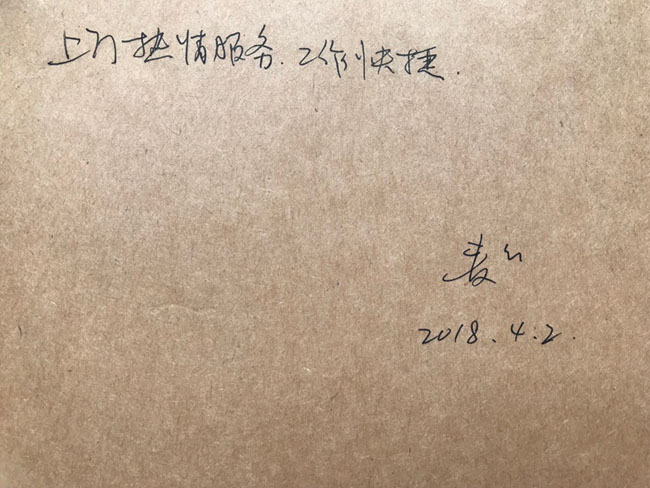 上门热情服务.工作快捷.
麦
2018.4.2.